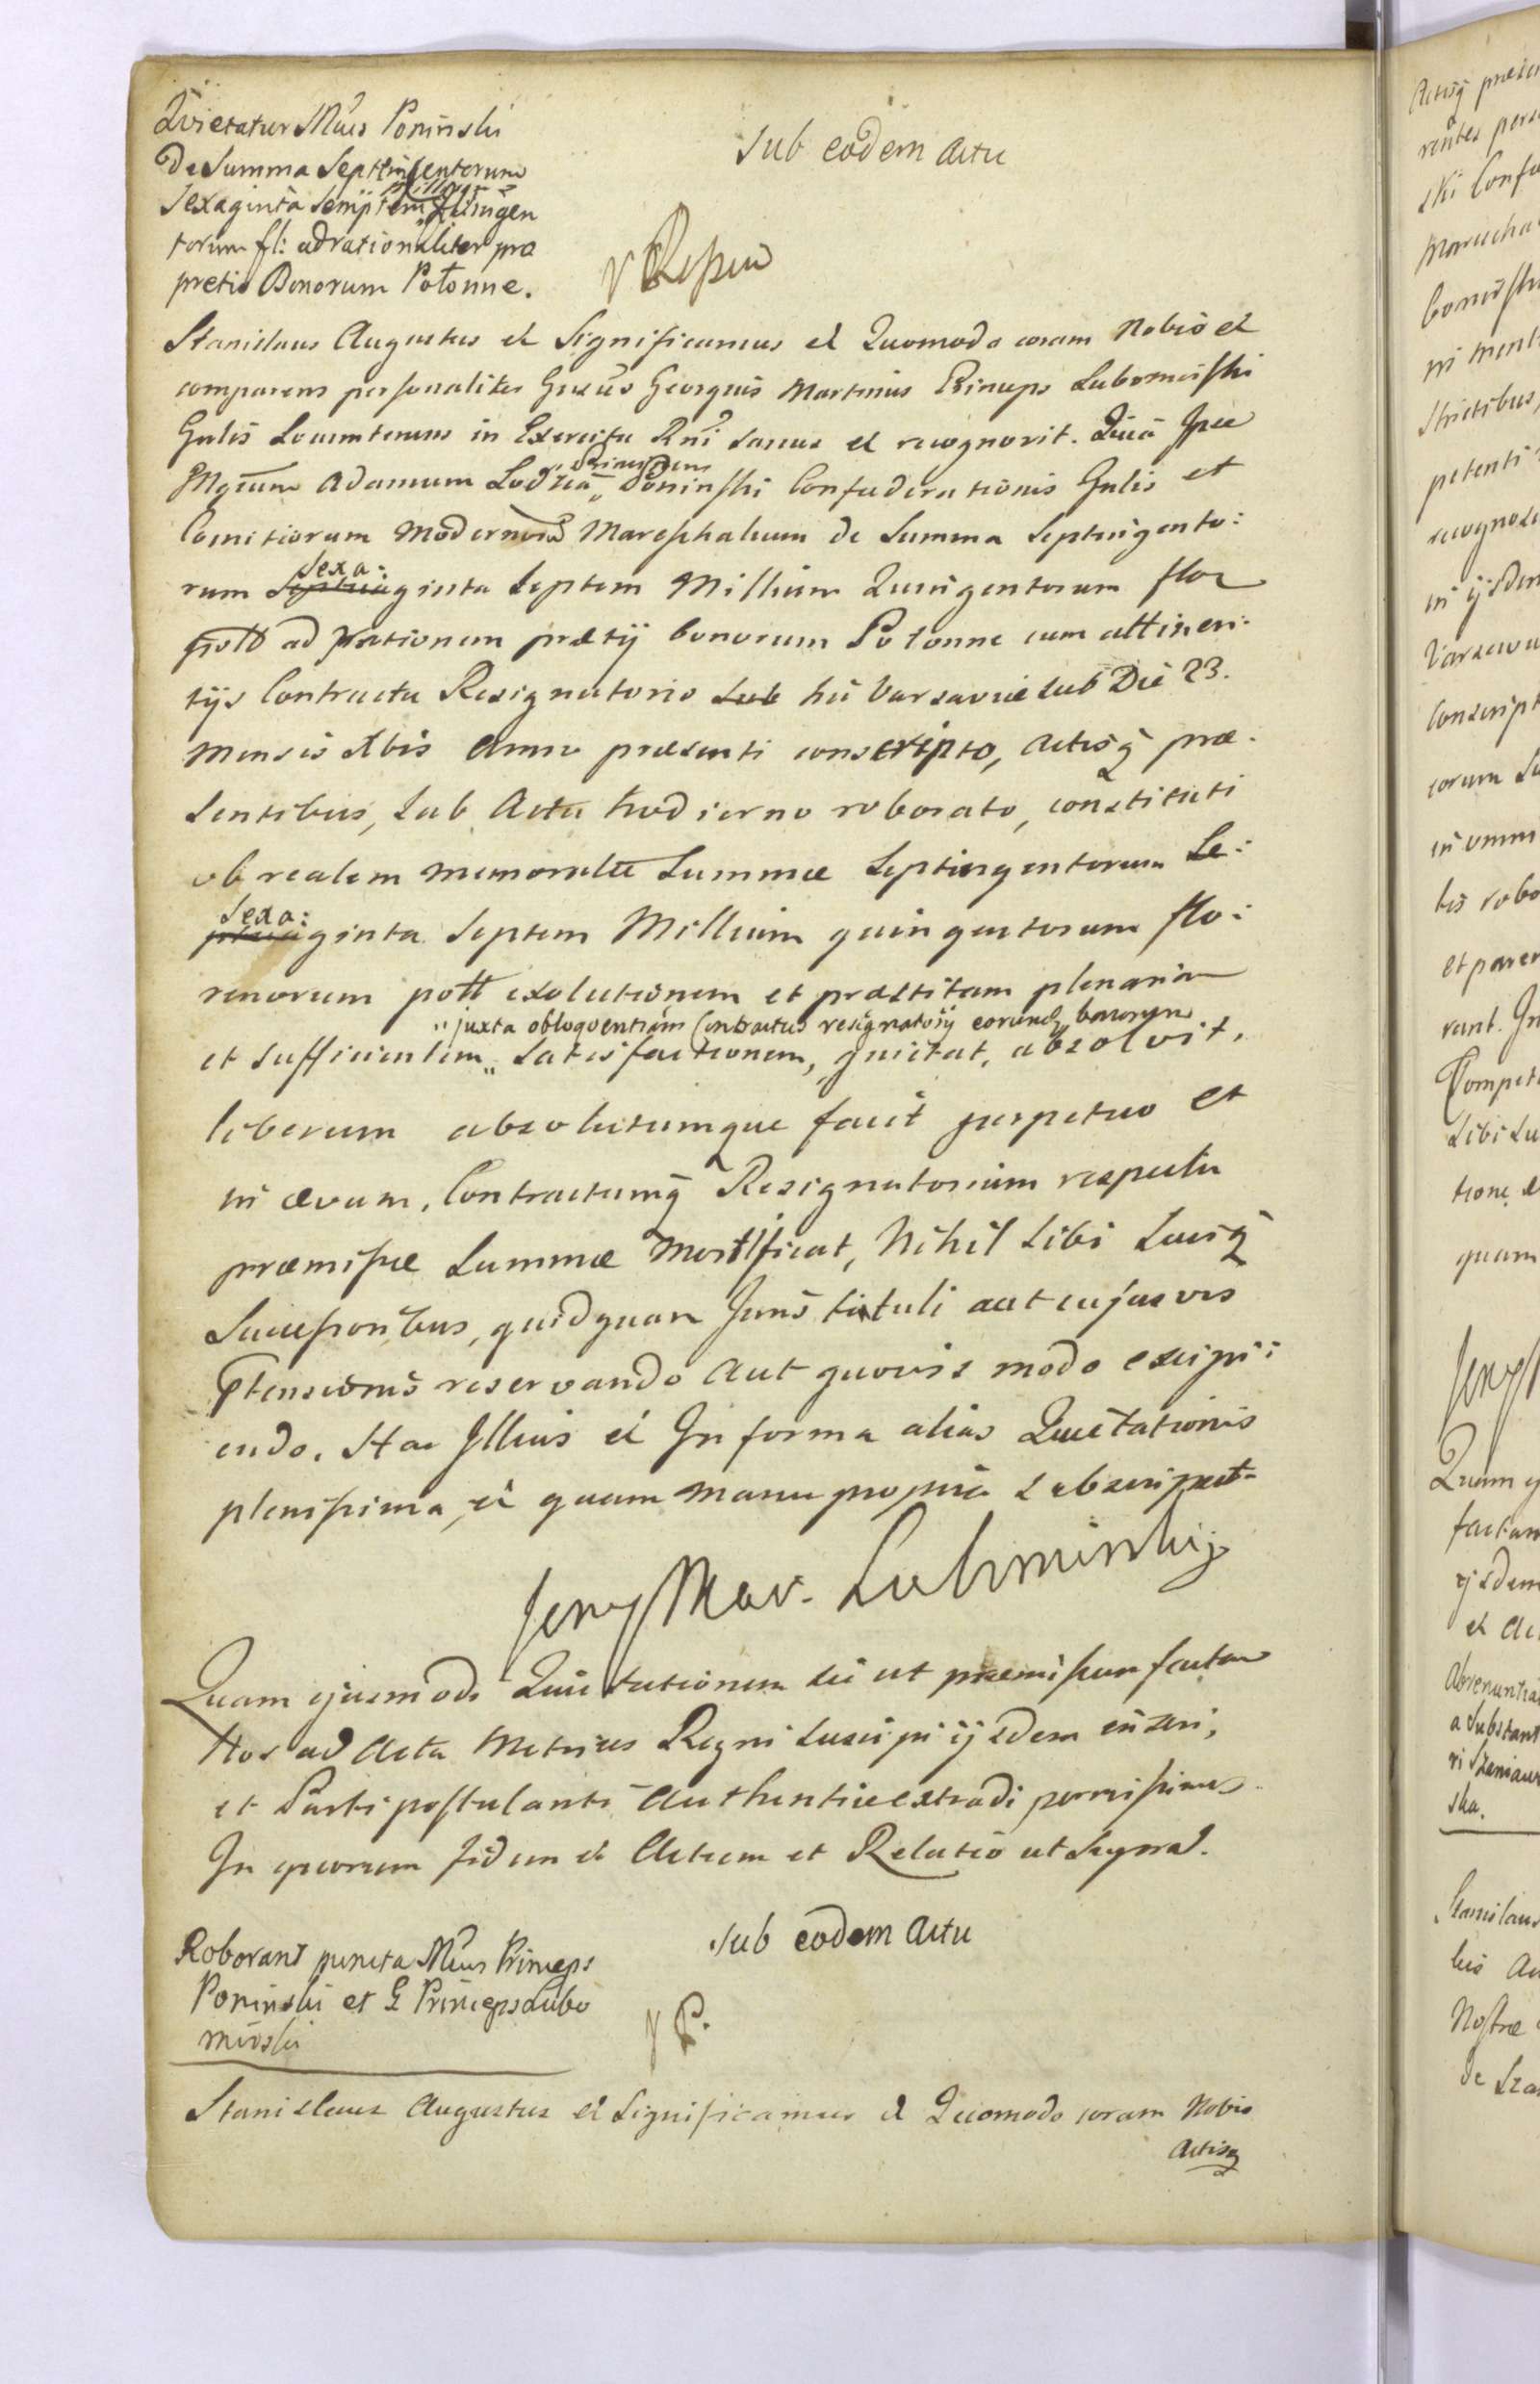 Qvietatur Mcus Poninski
de Summa Septingentorum
Sexaginta Semptem Millium Quingen
torum fl: ad rationaliter pro
pretio Bonorum Połonne.
Sub eodem Actu
Stanislaus Augustus et Significamus et Quomodo coram Nobis et
comparens personaliter Gnsus Georgius Martinus Princeps Lubomirski
Gnlis Locumtenens in Exercitu Rni sanus et recognovit. Quia Ipse
Mgcum Adamum Lodzia „Principem„ Poninski Confæderationis Gnlis et
Comitiorum Modernorum Mareschalcum de Summa Septingento:
rum Sexa:ginta Septem Millium Quingentorum flor
poll ad rationem prætij bonorum Połonne cum attinen:
tijs Contractu Resignatorio Sub hic Varsaviæ sub Die 23.
Mensis Xbris Anno præsenti conscripto, Actisq præ-
sentibus, sub Actu hodierno roborato, constituti
ob realem memoratæ Summæ Septingentorum Se:
Sexa:ginta Septem Millium quingentorum flo:
renorum poll exolutionem et præstitam plenariam
„juxta obloquentiam Contractus resignatorij eorund„ bonorum
et sufficientem „ Satisfactionem, quietat, absolvit,
liberum absolutumque facit perpetuo et
in ævum, Contractumq Resignatorium respectu
præmissæ Summæ Mortificat, Nihil Sibi Suisq
Successoribus, quidquam Juris tituli aut cujusvis
Ptensionis reservando aut quovis modo excipi:
endo. Hac Illius et In forma alias Quietationis
plenissima, et quam manu propria Subscripsit-
Jerzy Mar. Lubomirskij
Quam ejusmodi Quietationem sic ut præmissum factam
Nos ad Acta Metrices Regni Suscipi ijsdem inseri,
et Parti postulanti Authentice extradi permisimus.
In quorum fidem et Actum et Relatio ut Supra.
Sub eodem Actu
Roborant puncta Mcus Princeps
Poninski et G Princeps Lubo
mirski
P.
Stanislaus Augustus et Significamus et Quomodo coram Nobis
Actisq